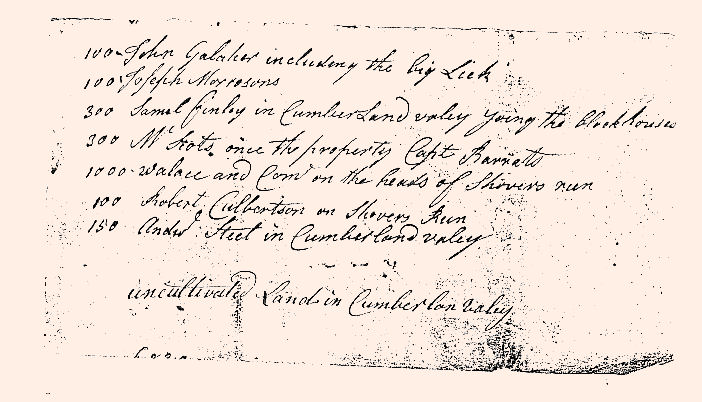 100 - John Galaher including the big Lick
100 - Joseph Morrosons
300 Samel finley in Cumberland valey Joing the Block houses
300 Mr Scots once the property Capt Barnatts
1000 - Walace and Comy on the heads of Shovers run
100 Robert Culbertson on Shovers Run
150 Andw Steet in Cumberland valey
uncultivated Land in Cumberlon Valey